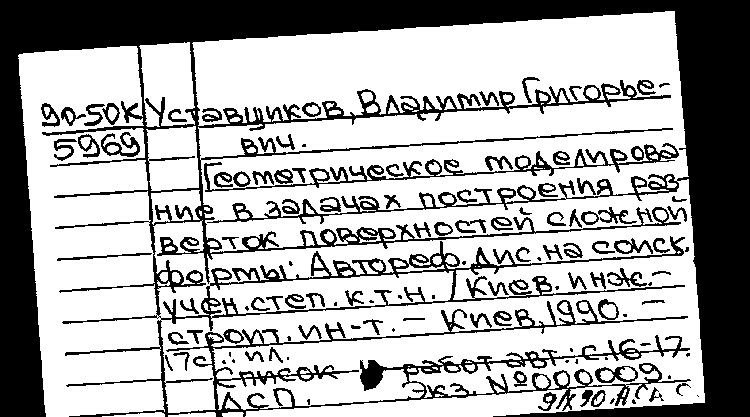 90-50К Уставщиков, Владимир Григорье-
5969 вич.
Геометрическое моделирова-
ние в задачах построения раз-
верток поверхностей сложной
формы: Автореф. дис. на соиск.
учен. степ. к.т.н. / Киев. инж.-
строит. ин-т. – Киев, 1990. –
17с.: ил.
Список работ авт.: с. 16-17.
ДСП. Экз. №000009.